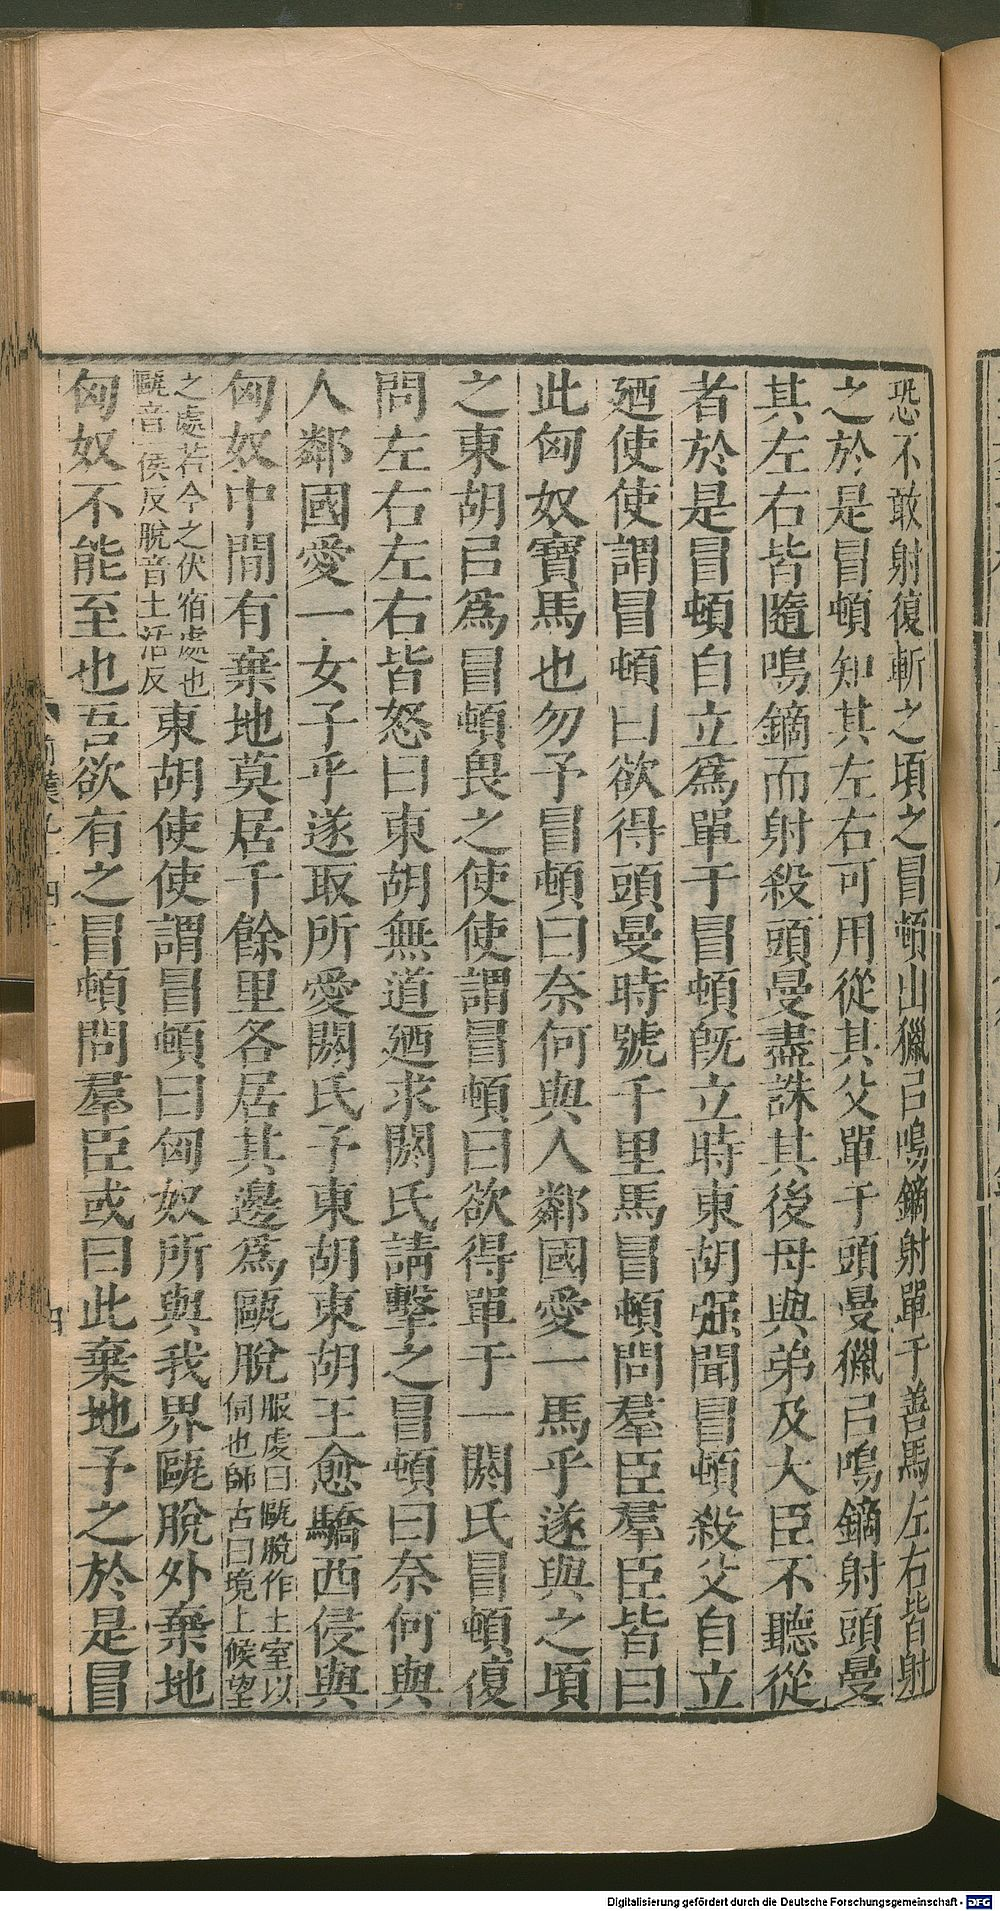 恐不敢射復斬之頃之冒頓出獵㠯鳴鏑射單于善馬左右皆射
之於是冒頓知其左右可用從其父單于頭曼獵㠯鳴鏑射頭曼
其左右皆隨鳴鏑而射殺頭曼盡誅其後母與弟及大臣不聽從
者於是冒頓自立爲單于冒頓旣立時東胡强聞冒頓殺父自立
廼使使謂冒頓曰欲得頭曼時號千里馬冒頓問羣臣羣臣皆曰
此匈奴寶馬也勿予冒頓曰奈何與人鄰國愛一馬乎遂與之頃
之東胡㠯爲冒頓畏之使使謂冒頓曰欲得單于一閼氏冒頓復
問左右左右皆怒曰東胡無道廼求閼氏請擊之冒頓曰奈何與
人鄰國愛一女子乎遂取所愛閼氏予東胡東胡王愈驕西侵與
匈奴中間有棄地莫居千餘里各居其邊爲甌脫
服虔曰甌脫作土室以
伺也師古曰境上候望
之處若今之伏宿處也
甌音一侯反脫音土活反
東胡使使謂冒頓曰匈奴所與我界甌脫外棄地
匈奴不能至也吾欲有之冒頓問羣臣或曰此棄地予之於是冒
四
Digitalisierung gefördert durch die Deutsche Forschungsgemeinschaft - DFG